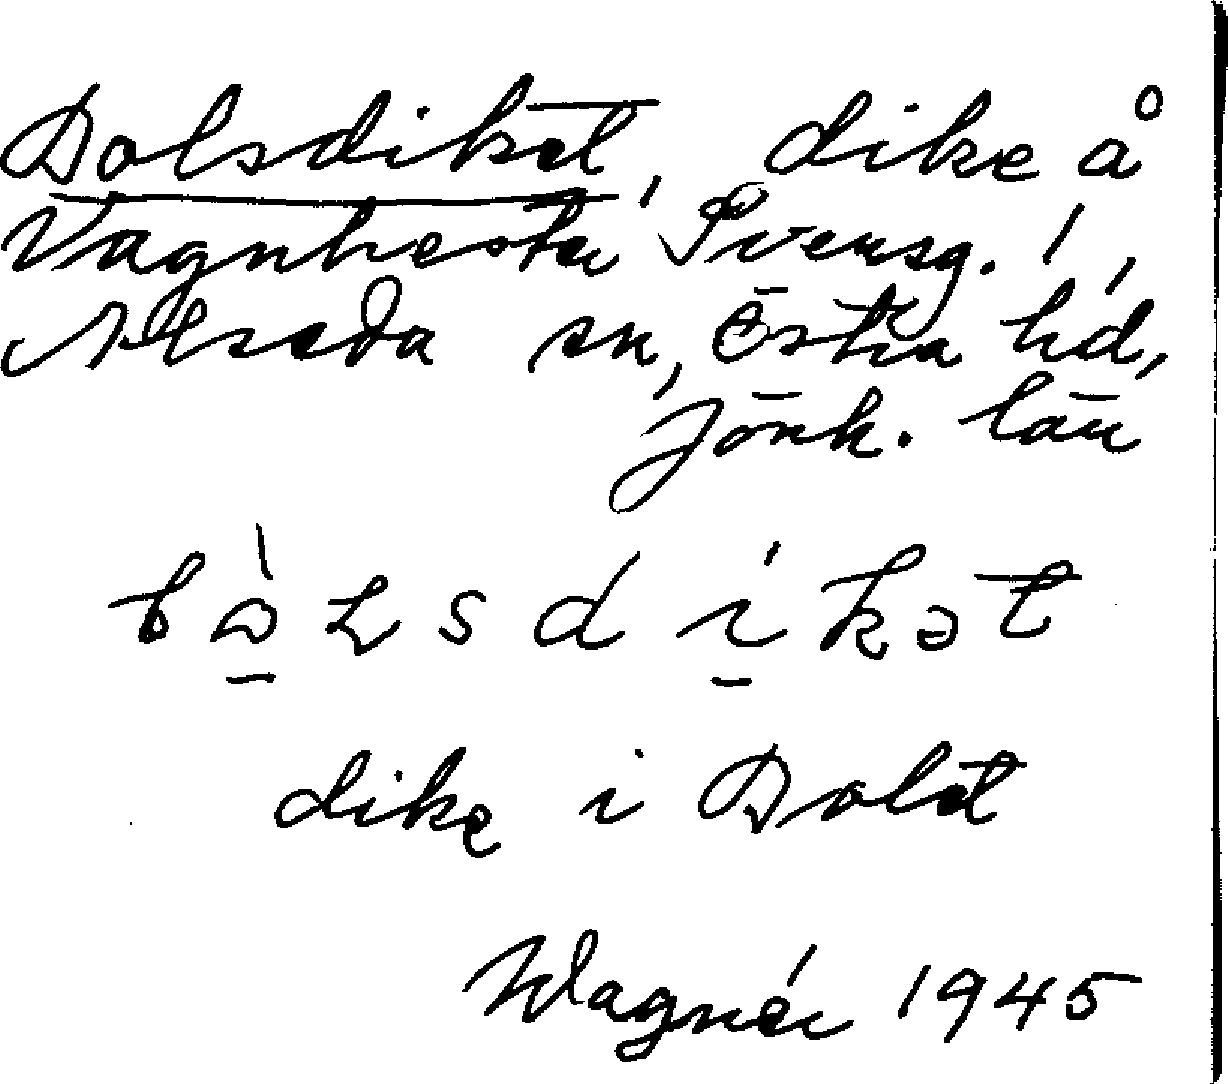 Bolsdiket, dike å
Vagnhester Svensg. 1,
Alseda sn, Östra hd,
Jönk. län
bɷ̀ʟsdíkət
dike i Bolet
Wagnér 1945